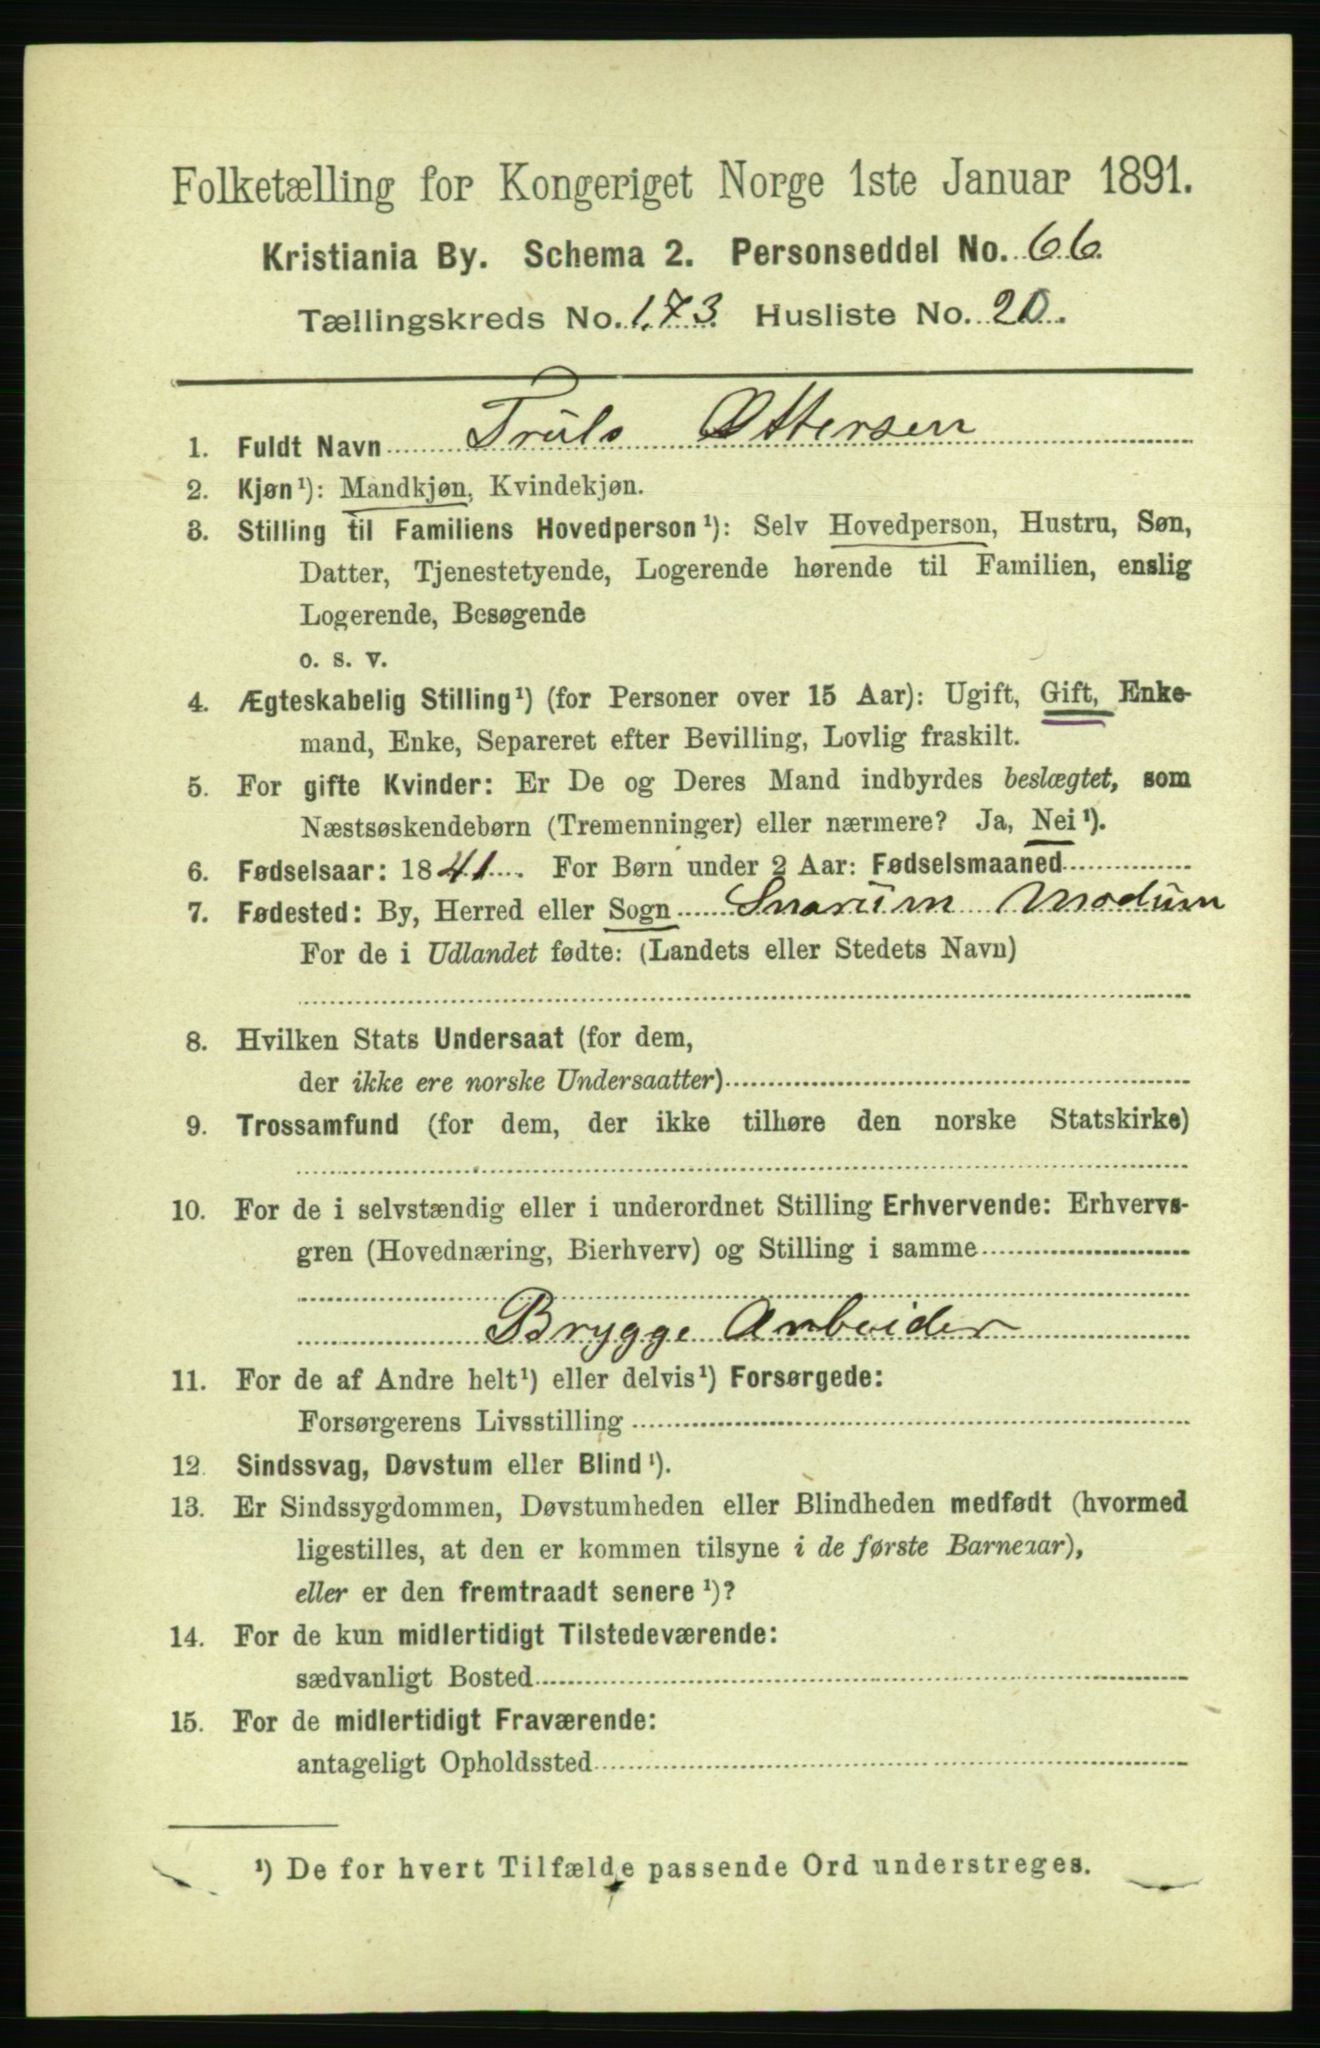 Folketælling for Kongeriget Norge 1ste Januar 1891.
Kristiania By. Schema 2. Personseddel No. 66.
Tællingskreds No. 173. Husliste No. 20.
1. Fuldt Navn Truls Ottersen
2. Kjøn¹): Mandkjøn, Kvindekjøn.
3. Stilling til Familiens Hovedperson¹): Selv Hovedperson, Hustru, Søn,
Datter, Tjenestetyende, Logerende hørende til Familien, enslig
Logerende, Besøgende
o. s. v.
4. Ægteskabelig Stilling¹) (for Personer over 15 Aar): Ugift, Gift, Enke-
mand, Enke, Separeret efter Bevilling, Lovlig fraskilt.
5. For gifte Kvinder: Er De og Deres Mand indbyrdes beslægtet, som
Næstsøskendebørn (Tremenninger) eller nærmere? Ja, Nei¹).
6. Fødselsaar: 1841. For Børn under 2 Aar: Fødselsmaaned
7. Fødested: By, Herred eller Sogn Snarum Modum
For de i Udlandet fødte: (Landets eller Stedets Navn)
8. Hvilken Stats Undersaat (for dem,
der ikke ere norske Undersaatter)
9. Trossamfund (for dem, der ikke tilhøre den norske Statskirke)
10. For de i selvstændig eller i underordnet Stilling Erhvervende: Erhvervs-
gren (Hovednæring, Bierhverv) og Stilling i samme
Brygge Arbeider
11. For de af Andre helt¹) eller delvis¹) Forsørgede:
Forsørgerens Livsstilling
12. Sindssvag, Døvstum eller Blind¹).
13. Er Sindssygdommen, Døvstumheden eller Blindheden medfødt (hvormed
ligestilles, at den er kommen tilsyne i de første Barneaar),
eller er den fremtraadt senere¹)?
14. For de kun midlertidigt Tilstedeværende:
sædvanligt Bosted
15. For de midlertidigt Fraværende:
antageligt Opholdssted
¹) De for hvert Tilfælde passende Ord understreges.